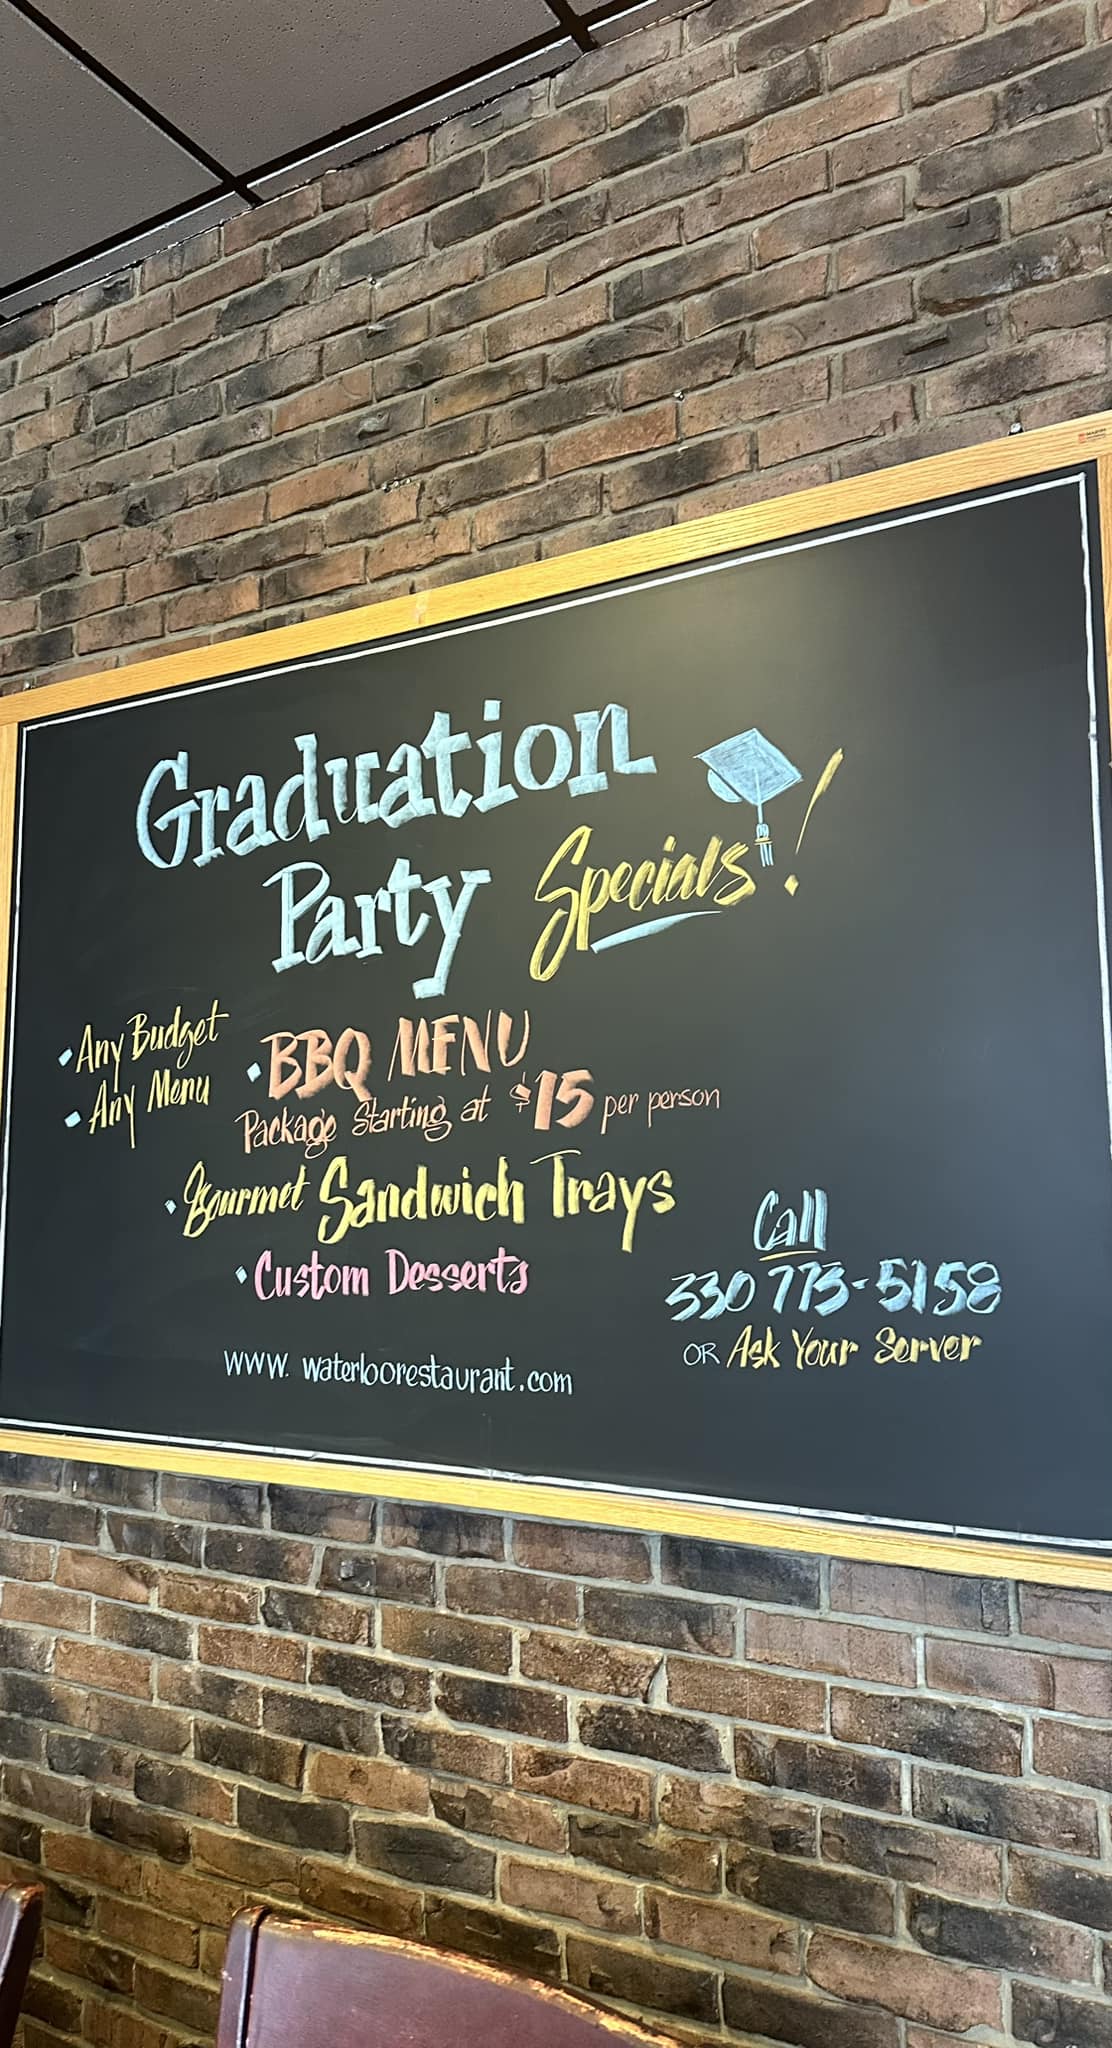 Graduation
Party Specials!
• Any Budget
• Any Menu
• BBQ MENU
Package Starting at $15 per person
• Gourmet Sandwich Trays
• Custom Desserts
www.waterloorestaurant.com
Call
330 773-5158
OR Ask Your Server